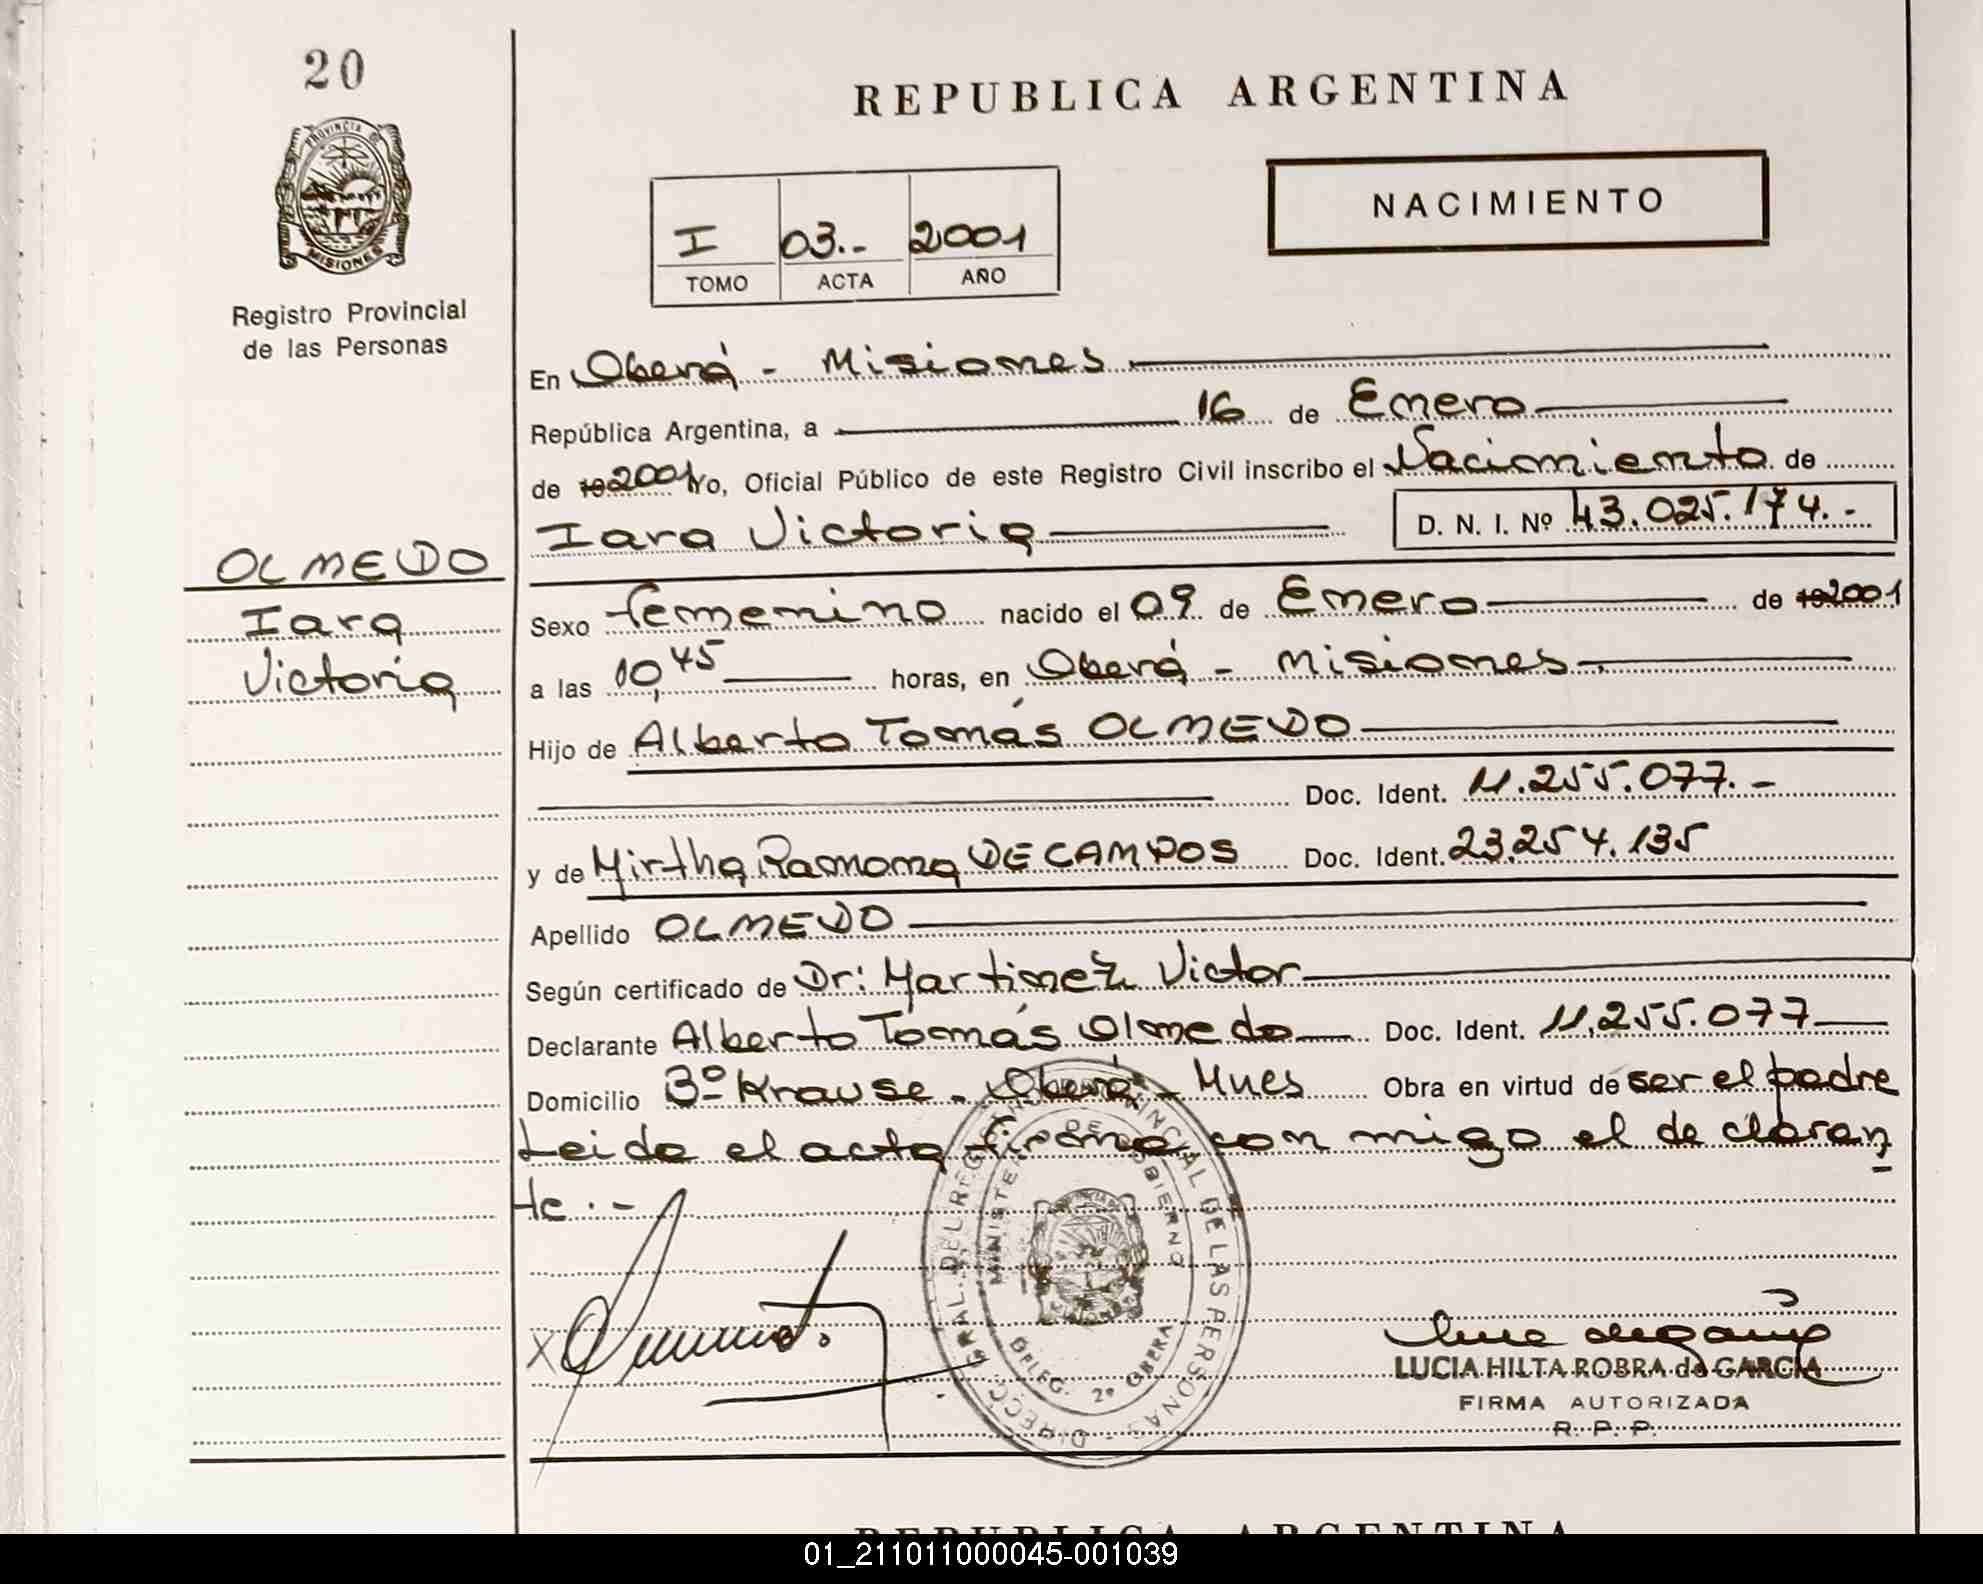 20
PROVINCIA DE
MISIONES
Registro Provincial
de las Personas
OLMEDO
Iara
Victoria
REPUBLICA ARGENTINA
I 03.- 2001
TOMO ACTA AÑO
NACIMIENTO
En Oberá - Misiones
República Argentina, a 16 de Enero
de 19 2001 Yo, Oficial Público de este Registro Civil inscribo el Nacimiento de
Iara Victoria D. N. I. Nº 43.025.174.-
Sexo femenino nacido el 09 de Enero de 19 2001
a las 10,45 horas, en Oberá - Misiones
Hijo de Alberto Tomás OLMEDO
Doc. Ident. 11.255.077.-
y de Mirtha Ramona DE CAMPOS Doc. Ident. 23.254.135
Apellido OLMEDO
Según certificado de Dr: Martinez Victor
Declarante Alberto Tomás Olmedo Doc. Ident. 11.255.077
Domicilio 3º Krause - Oberá - Mnes Obra en virtud de ser el padre
Leida el acta firma con migo el de claran
te.-
DIRECC. GRAL. DEL REGISTRO PROVINCIAL DE LAS PERSONAS
MINISTERIO DE GOBIERNO
DELEG. 2ª OBERA
X
LUCIA HILTA ROBRA de GARCIA
FIRMA AUTORIZADA
R. P. P.
REPUBLICA ARGENTINA
01_211011000045-001039